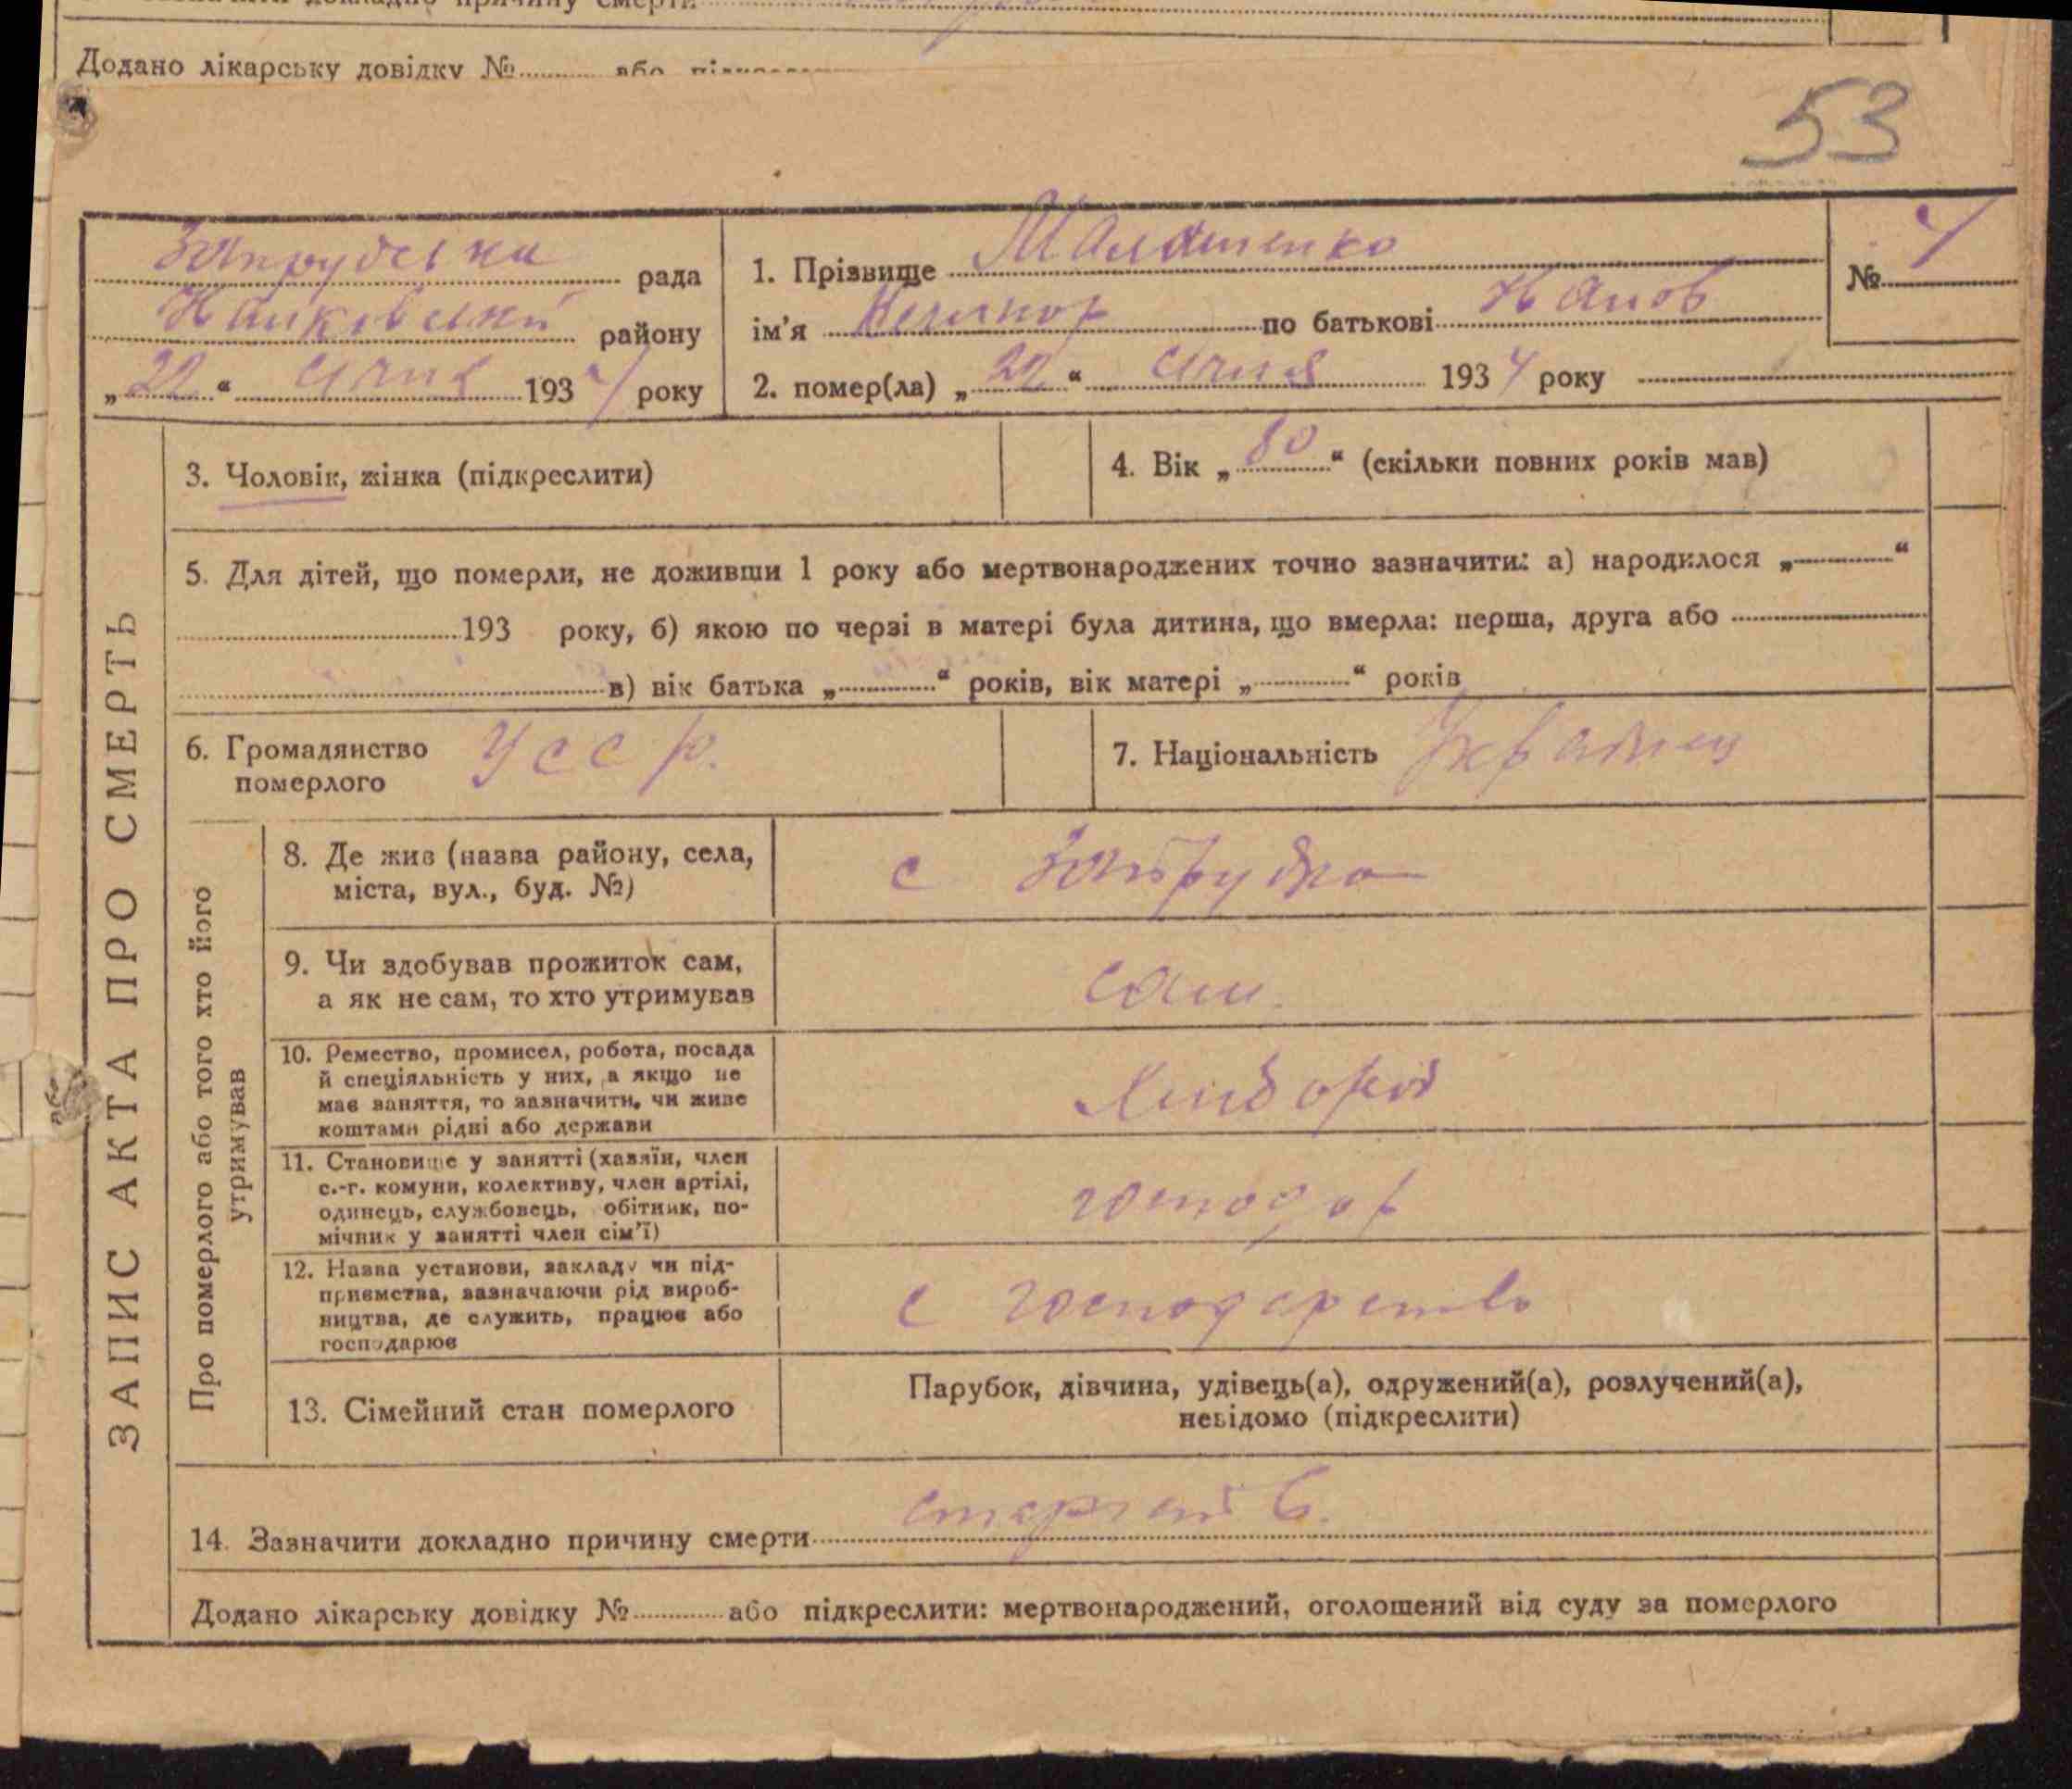 Додано лікарську довідку №
53
Запрудська рада
району
„22“ Січня 1934 року
1. Прізвище Малашенко
ім'я по батькові
2. помер(ла) „22“ Січня 1934 року
№
ЗАПИС АКТА ПРО СМЕРТЬ
3. Чоловік, жінка (підкреслити)
4. Вік „80“ (скільки повних років мав)
5. Для дітей, що померли, не доживши 1 року або мертвонароджених точно зазначити: а) народилося „ “
193 року, б) якою по черзі в матері була дитина, що вмерла: перша, друга або
в) вік батька „ “ років, вік матері „ “ років
6. Громадянство
померлого
УССР.
7. Національність Українец
Про померлого або того хто його
утримував
8. Де жив (назва району, села,
міста, вул., буд. №)
с Запрудка
9. Чи здобував прожиток сам,
а як не сам, то хто утримував
сам.
10. Ремество, промисел, робота, посада
й спеціяльність у них, а якщо не
має заняття, то зазначити, чи живе
коштами рідні або держави
Хлібороб
11. Становище у занятті (хазяїн, член
с.-г. комуни, колективу, член артілі,
одинець, службовець, обітник, по-
мічник у занятті член сім'ї)
господар
12. Назва установи, закладу чи під-
приємства, зазначаючи рід вироб-
ництва, де служить, працює або
господарює
с господарство
13. Сімейний стан померлого
Парубок, дівчина, удівець(а), одружений(а), розлучений(а),
невідомо (підкреслити)
14. Зазначити докладно причину смерти
Додано лікарську довідку № або підкреслити: мертвонароджений, оголошений від суду за померлого